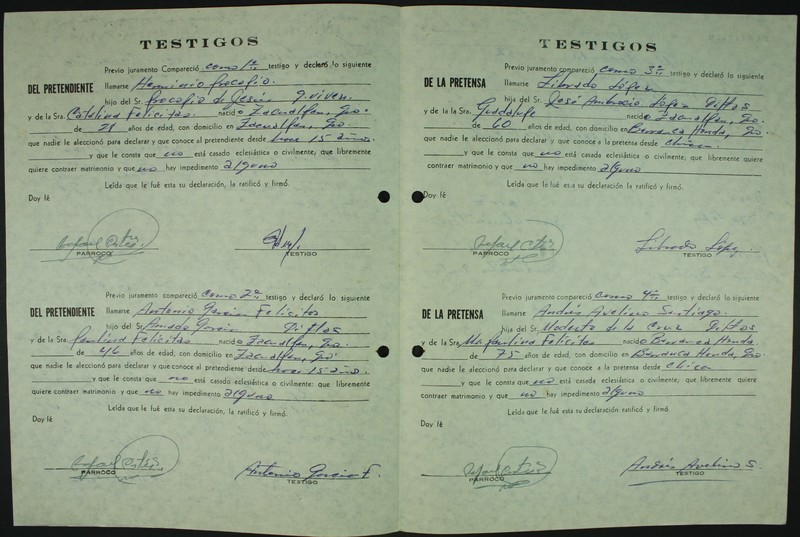 TESTIGOS
Previo juramento Compareció como 1er testigo y declaró lo siguiente
DEL PRETENDIENTE llamarse Herminio Procopio.
hijo del Sr. Procopio de Jesús y viven.
y de la Sra. Catalina Felicitas nacido Zacualpan, Gro.
de 28 años de edad, con domicilio en Zacualpan, Gro.
que nadie le aleccionó para declarar y que conoce al pretendiente desde hace 15 años.
y que le consta que no está casado eclesiástica o civilmente; que libremente
quiere contraer matrimonio y que no hay impedimento alguno
Leída que le fué esta su declaración, la ratificó y firmó.
Doy fé
PARROCO
TESTIGO
Previo juramento compareció como 2o testigo y declaró, lo siguiente
DEL PRETENDIENTE llamarse Antonio García Felicitas
hijo del Sr. Amado García Dittos
y de la Sra. Paulina Felicitas nacido Zacualpan, Gro.
de 46 años de edad, con domicilio en Zacualpan, Gro.
que nadie le aleccionó para declarar y que conoce al pretendiente desde hace 15 años.
y que le consta que no está casado eclesiástica o civilmente: que libremente
quiere contraer matrimonio y que no hay impedimento alguno
Leída que le fué esta su declaración, la ratificó y firmó.
Doy fé
PARROCO
Antonio García F.
TESTIGO
TESTIGOS
Previo juramento compareció como 3er testigo y declaró lo siguiente
DE LA PRETENSA llamarse Librado López
hija del Sr. José Ambrocio López Dittos
y de la la Sra. Guadalupe nacido Zacualpan, Gro.
de 60 años de edad, con domicilio en Barranca Honda, Gro.
que nadie le aleccionó para declarar y que conoce a la pretensa desde chica.
y que le consta que no está casada eclesiástica o civilmente; que libremente quiere
contraer matrimonio y que no hay impedimento alguno
Leída que le fué esta su declaración, la ratificó y firmó.
Doy fé
PARROCO
Librado López
TESTIGO
Previo juramento compareció como 4o testigo y declaró lo siguiente
DE LA PRETENSA llamarse Andrés Avelino Santiago.
hija del Sr. Modesto de la Cruz Dittos
y de la Sra. Ma. Paulina Felicitas nacido Barranca Honda.
de 75 años de edad, con domicilio en Barranca Honda, Gro.
que nadie le aleccionó para declarar y que conoce a la pretensa desde chica
y que le consta que no está casada eclesiástica o civilmente; que libremente quiere
contraer matrimonio y que no hay impedimento alguno
Leída que le fué esta su declaración, la ratificó y firmó.
Doy fé
PARROCO
Andrés Avelino S.
TESTIGO